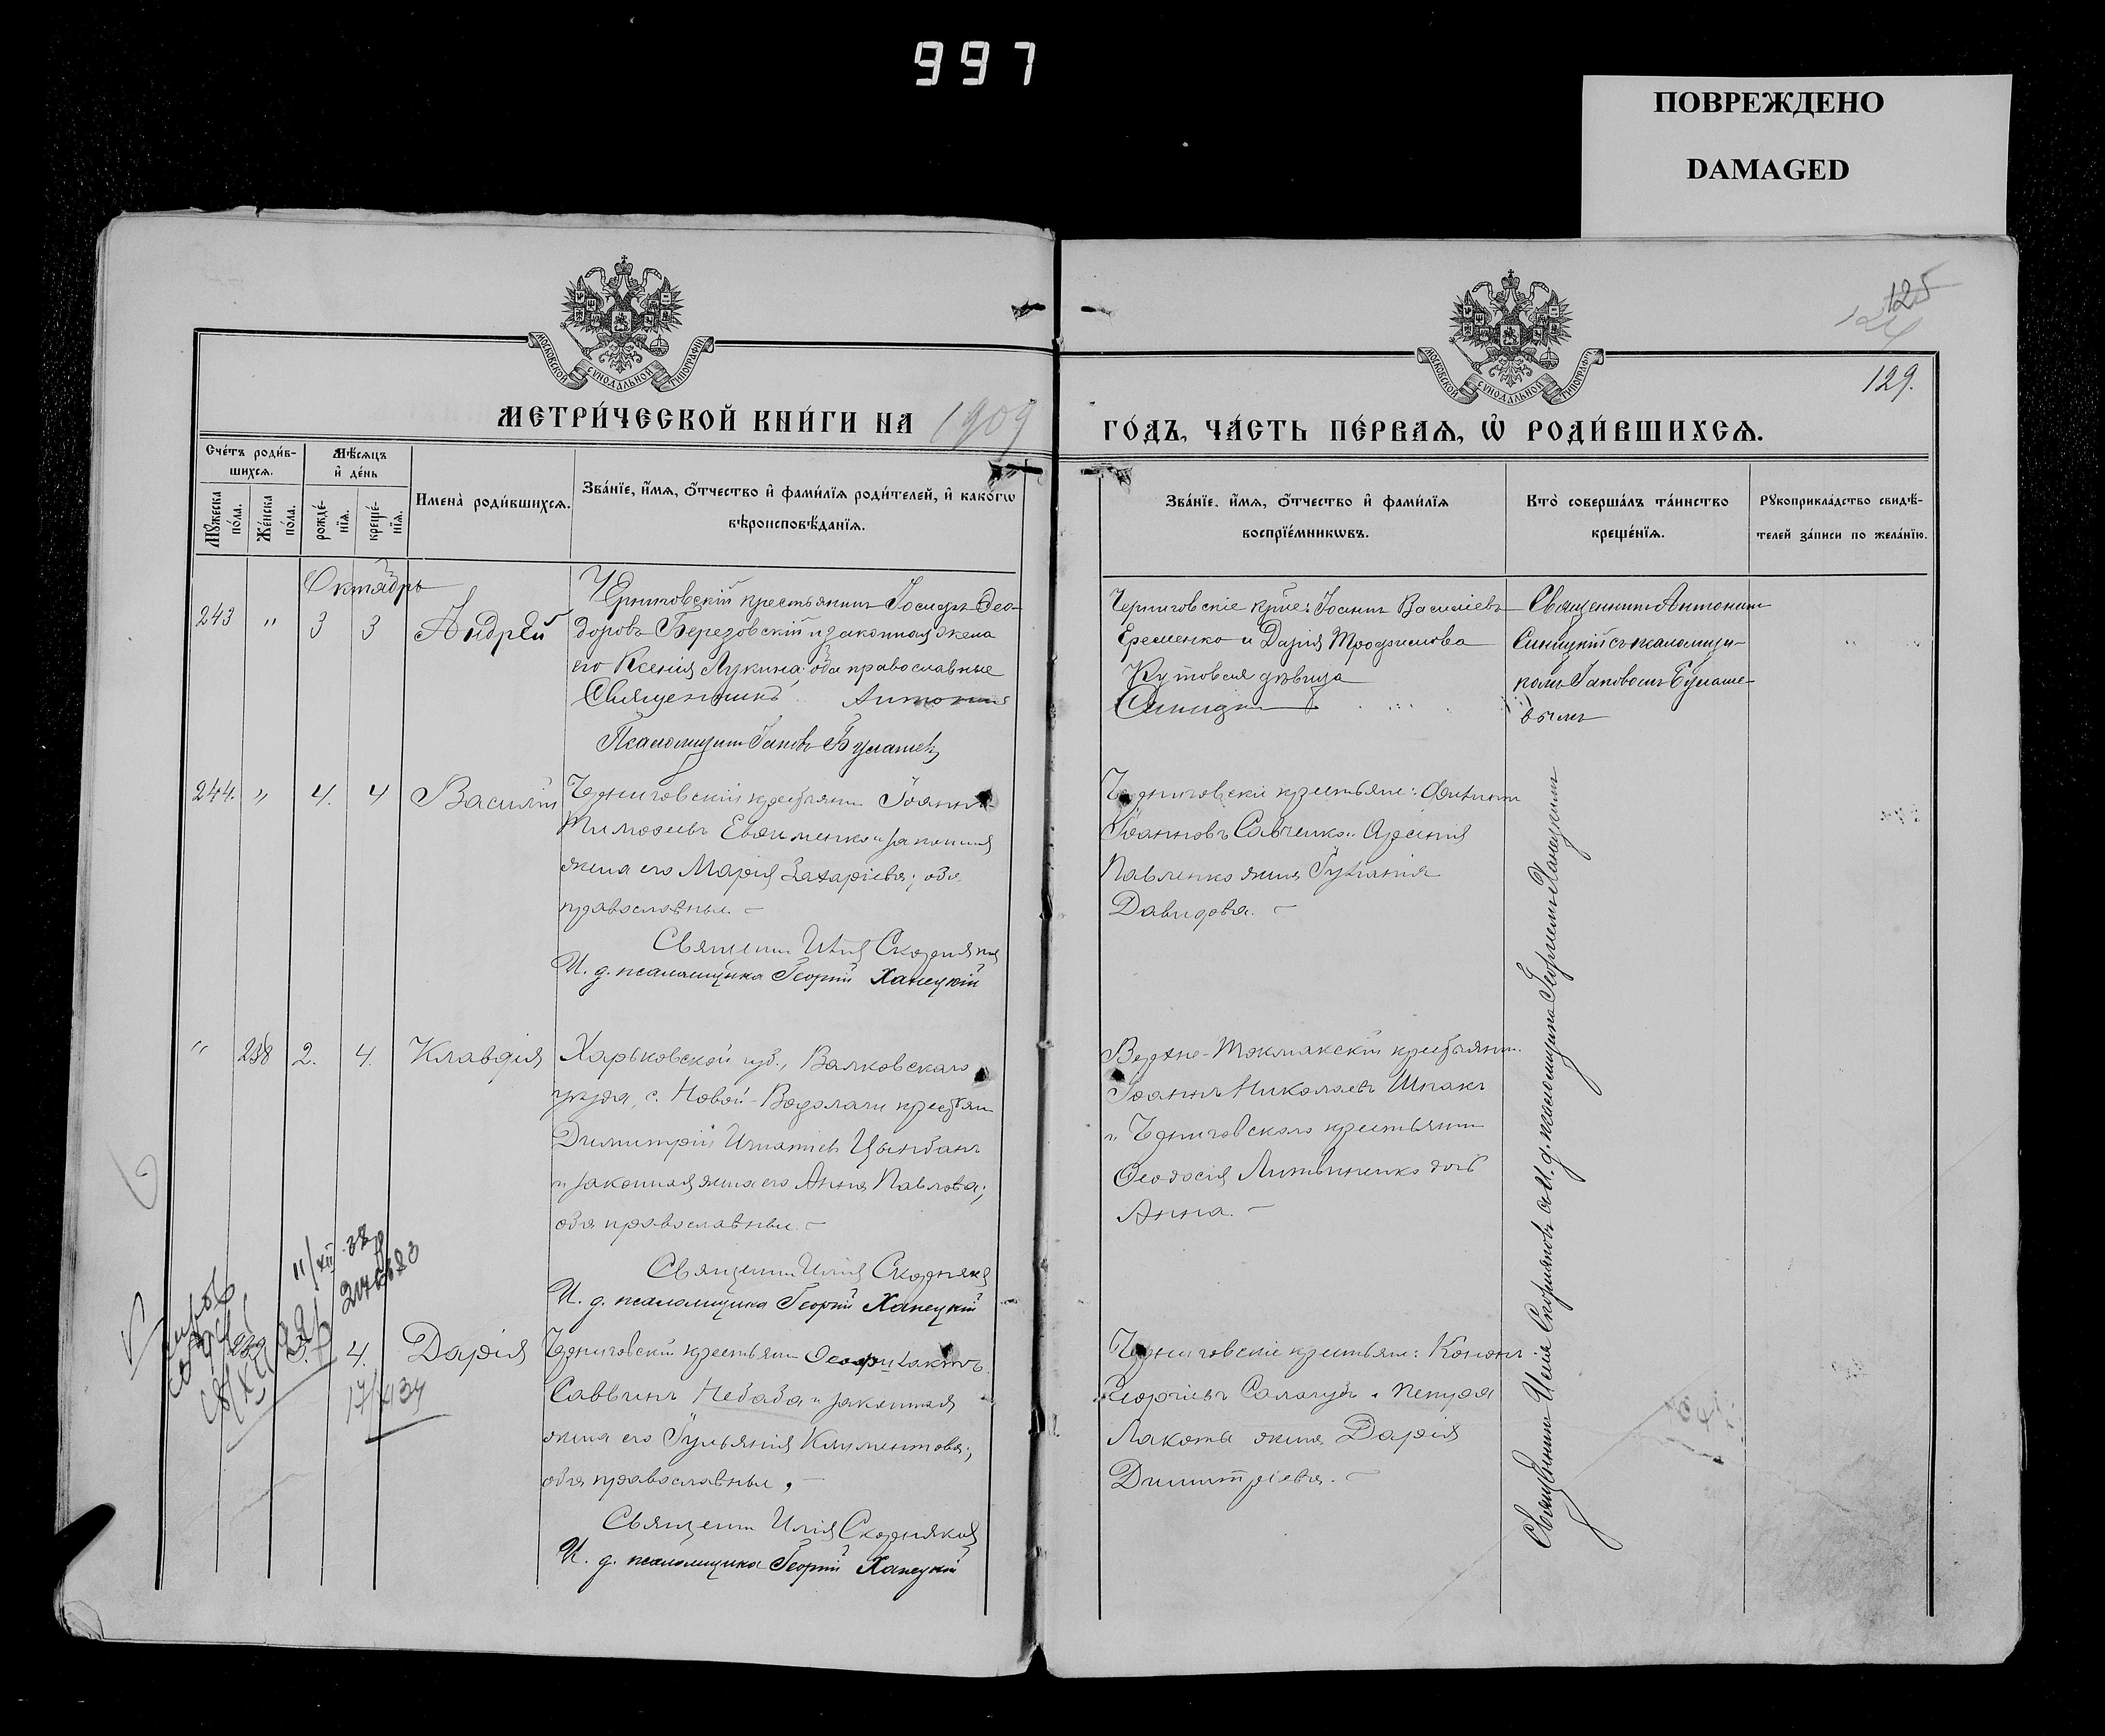 997
ПОВРЕЖДЕНО
DAMAGED
125
124
129.
МОСКОВСКОЙ СѴНОДАЛЬНОЙ ТИПОГРАФІИ
МОСКОВСКОЙ СѴНОДАЛЬНОЙ ТИПОГРАФІИ
МЕТРИ́ЧЕСКОЙ КНИ́ГИ НА 1909
ГО́ДЪ, ЧА́СТЬ ПЕ́РВАѦ, Ѽ РОДИ́ВШИХСѦ.
Сче́тъ роди́в-
шихсѧ.
Мꙋжеска
по́ла.
Же́нска
по́ла.
Мѣ́сѧцъ
и҆ де́нь
рожде́-
нїѧ.
креще́-
нїѧ.
Имена̀ роди́вшихсѧ.
Зва́нїе, и҆́мѧ, ѻ҆́тчество и҆ фами́лїѧ роди́телей, и҆ како́гѡ
вѣроисповѣ́данїѧ.
Зва́нїе, и҆́мѧ, ѻ҆́тчество и҆ фами́лїѧ
воспрїе́мникѡвъ.
Кто̀ соверша́лъ та́инство
креще́нїѧ.
Рꙋкоприкла́дство свидѣ́-
телей за́писи по жела́нїю.
Октябрь
243 " 3 3 Андрей
Черниговскій крестьянинъ Іосифъ Ѳео-
доровъ Березовскій и законная жена
его Ксенія Лукина оба православные
Священникъ Антоній
Псаломщикъ Іаковъ Булашевъ
Черниговскіе крне: Іоаннъ Василіевъ
Еременко и Дарія Трофимова
Кутовая дѣвица
Синицкій
Священникъ Антоній
Синицкій съ псаломщи-
комъ Іаковомъ Булаше-
вымъ
244. " 4. 4 Василій
Черниговскій крестьянин Іоаннъ
Тимоѳеевъ Евфименко и законная
жена его Марія Захаріева; оба
православные. –
Священникъ Илія Скорняковъ
И. д. псаломщика Георгій Ханецкій
Черниговскіе крестьяне: Филиппъ
Іоанновъ Савченко и Арсенія
Павленко жена Іуліанія
Давидова. –
" 238 2. 4. Клавдія
Харьковской губ., Валковскаго
уѣзда, с. Новой-Водолаги крестьян
Димитрій Игнатіевъ Цынбалъ
и законная жена его Анна Павлова;
оба православные. –
Священникъ Илія Скорняковъ
И. д. псаломщика Георгій Ханецкій
Верхне-Токмакскій крестьянин
Іоаннъ Николаевъ Шпакъ
и Черниговскаго крестьянина
Ѳеодосія Литвиненко дочь
Анна. –
239 3. 4. Дарія
Черниговскій крестьянин Ѳеофилактъ
Саввинъ Небаба и законная
жена его Іульянія Климентова;
оба православные. –
Священникъ Илія Скорняковъ
И. д. псаломщика Георгій Ханецкій
Черниговскіе крестьяне: Кононъ
Георгіевъ Сологубъ и
Лакоты жена Дарія
Димитріева. –
Священникъ Илія Скорняковъ съ И. д. псаломщика Георгіемъ Ханецкимъ